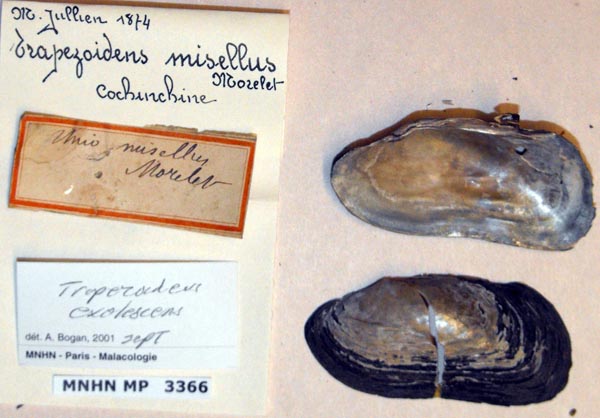 M. Jullien 1874
Trapezoidens misellus
Morelet
Cochinchine
Unio misellus
Morelet
Trapezoidens
exolescens
dét. A. Bogan, 2001 sept
MNHN - Paris - Malacologie
MNHN MP 3366